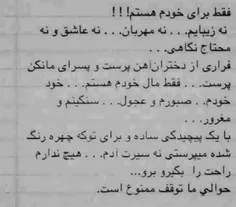 فقط برای خودم هستم!!!
نه زیبایم... نه مهربان... نه عاشق و نه
محتاج نگاهی...
فراری از دختران آهن پرست و پسرای مانکن
پرست... فقط مال خودم هستم... خود
خودم... صبورم و عجول... سنگینم و
مغرور...
با یک پیچیدگی ساده و برای توکه چهره رنگ
شده میپرستی نه سیرت آدم... هیچ ندارم
راحت را بگیرو برو...
حوالی ما توقف ممنوع است.